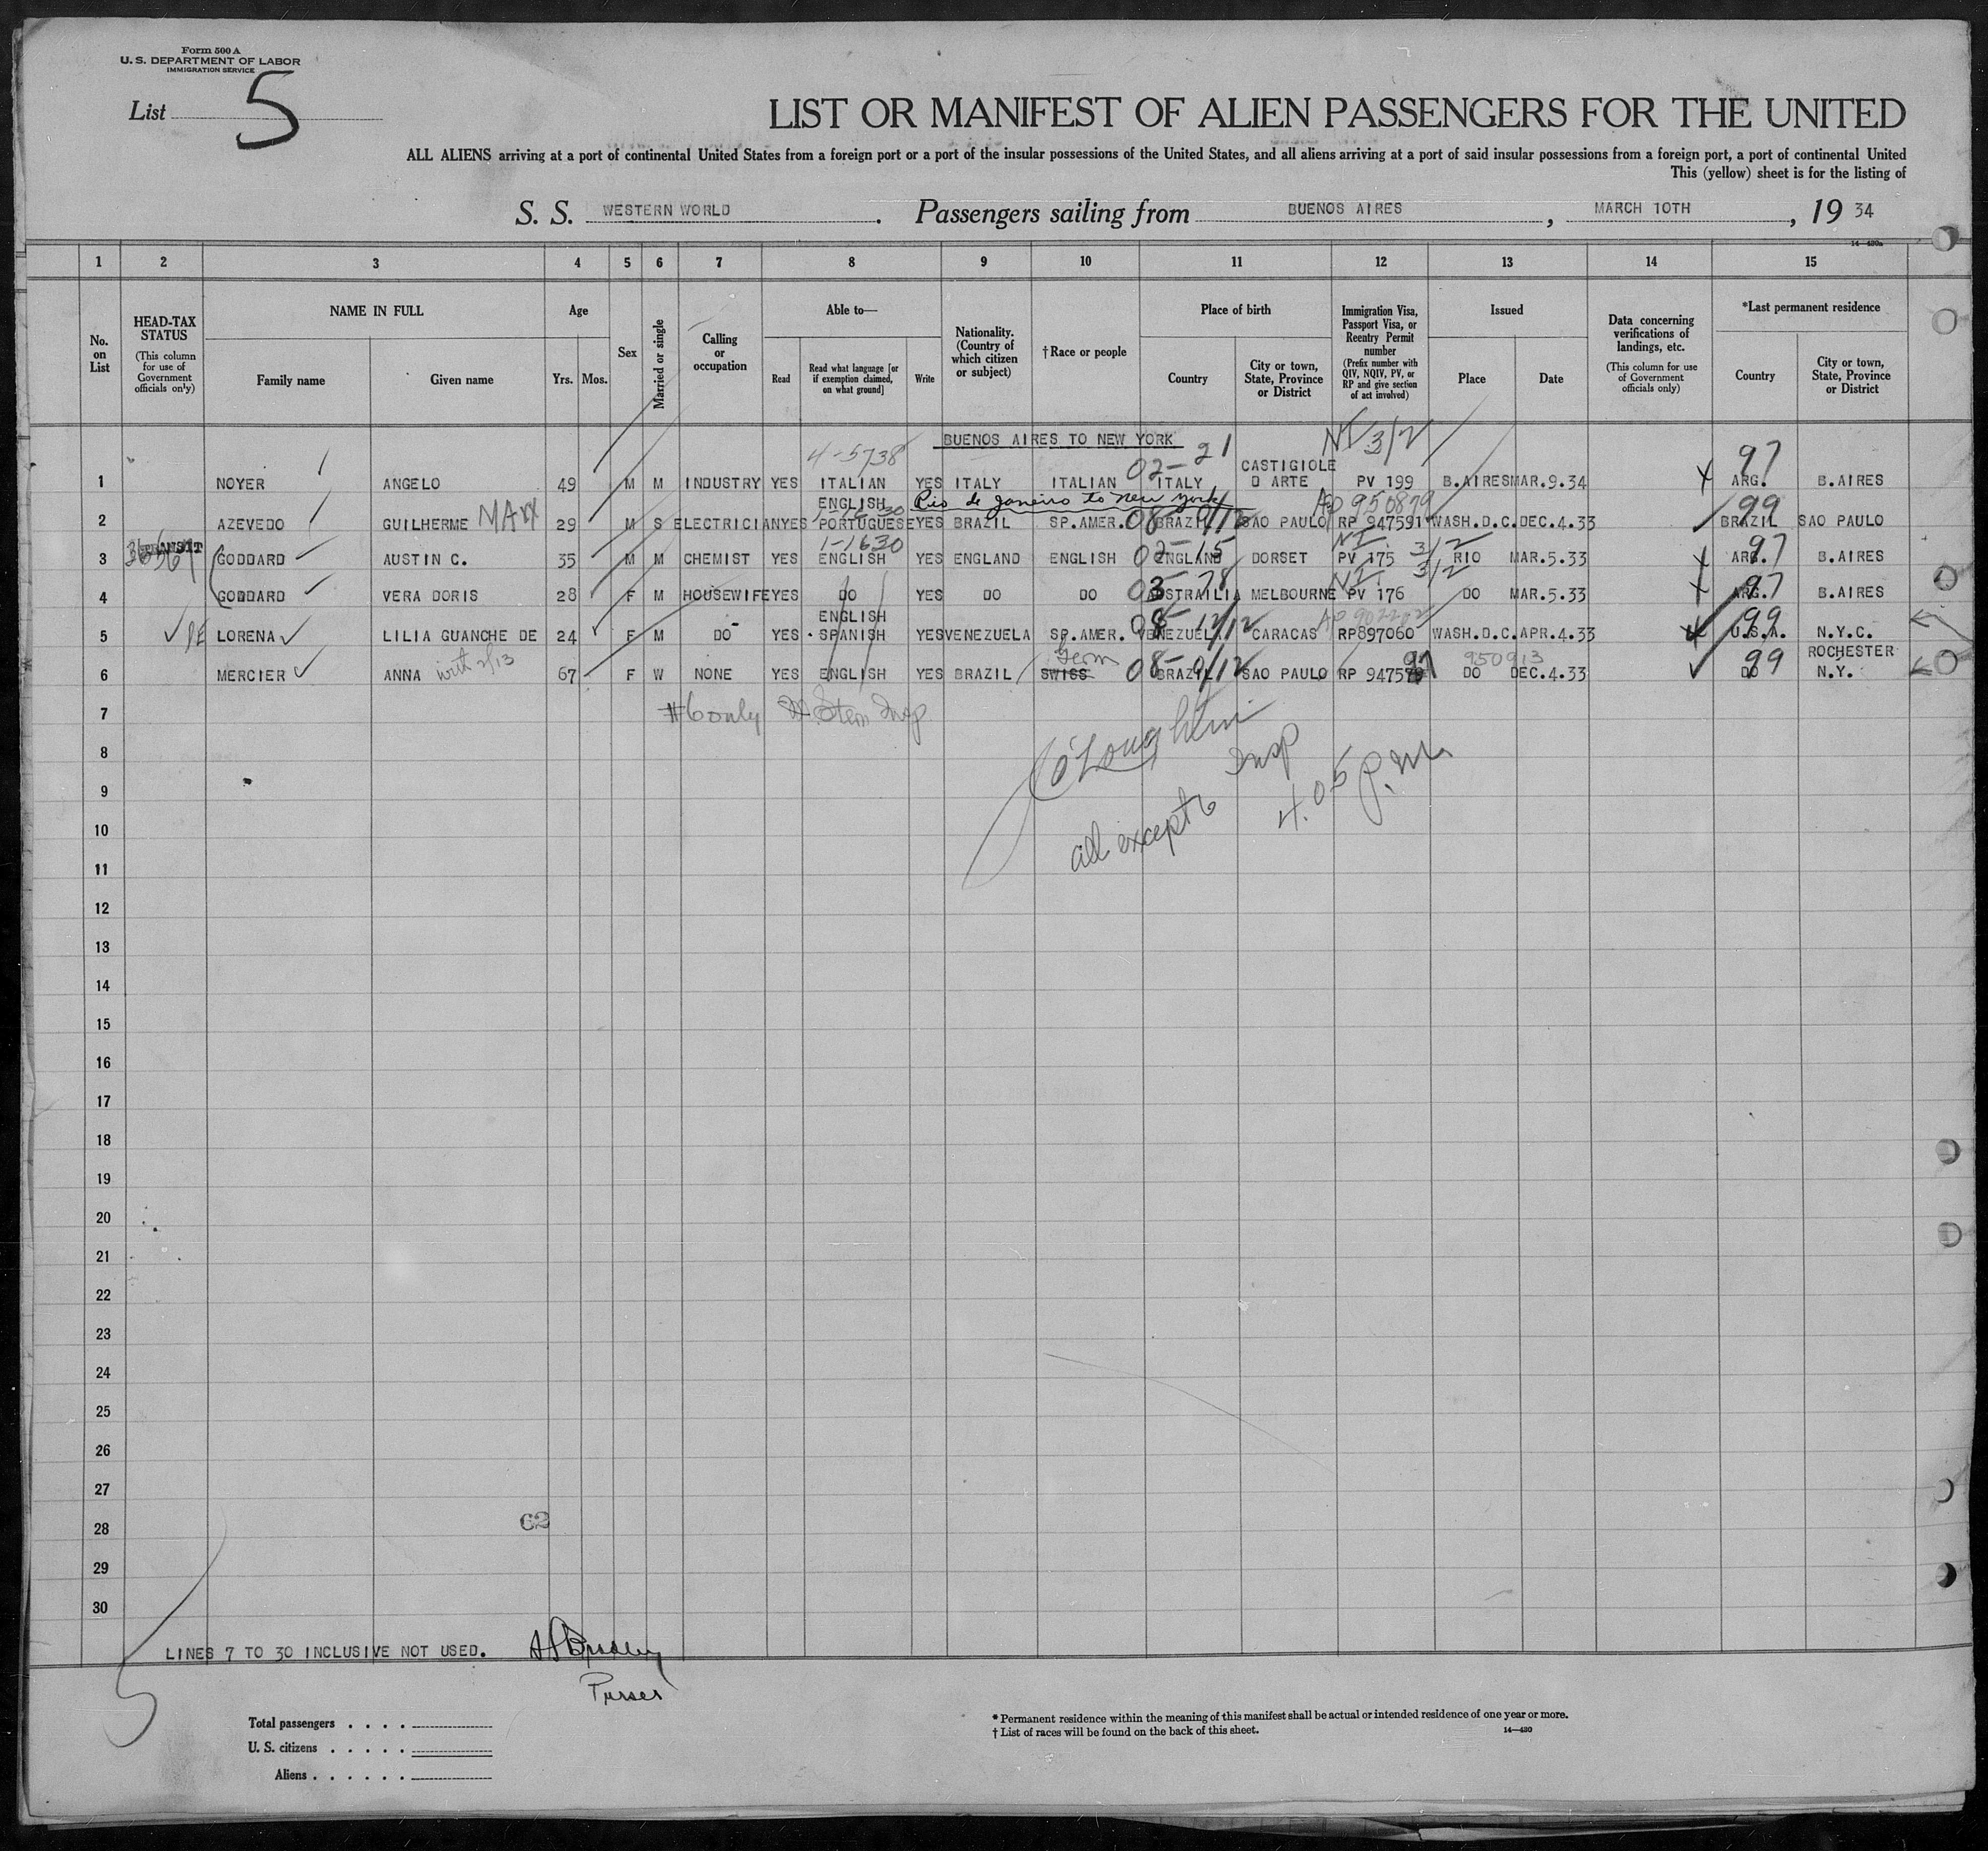 Form 500 A
U. S. DEPARTMENT OF LABOR
IMMIGRATION SERVICE
List 5
LIST OR MANIFEST OF ALIEN PASSENGERS FOR THE UNITED
ALL ALIENS arriving at a port of continental United States from a foreign port or a port of the insular possessions of the United States, and all aliens arriving at a port of said insular possessions from a foreign port, a port of continental United
This (yellow) sheet is for the listing of
S. S. WESTERN WORLD. Passengers sailing from BUENOS AIRES, MARCH 10TH, 19 34
14—430a
1 2 3 4 5 6 7 8 9 10 11 12 13 14 15
No. on List
HEAD-TAX STATUS (This column for use of Government officials only)
NAME IN FULL
Family name Given name
Age
Yrs. Mos.
Sex
Married or single
Calling or occupation
Able to—
Read Read what language [or if exemption claimed, on what ground] Write
Nationality. (Country of which citizen or subject)
† Race or people
Place of birth
Country City or town, State, Province or District
Immigration Visa, Passport Visa, or Reentry Permit number (Prefix number with QIV, NQIV, PV, or RP and give section of act involved)
Issued
Place Date
Data concerning verifications of landings, etc. (This column for use of Government officials only)
*Last permanent residence
Country City or town, State, Province or District
BUENOS AIRES TO NEW YORK
4-5738 02-21 NI 3/2 97
1 NOYER ANGELO 49 M M INDUSTRY YES ITALIAN YES ITALY ITALIAN ITALY CASTIGIOLE D ARTE PV 199 B.AIRES MAR.9.34 ARG. B.AIRES
Rio de Janeiro to New York
2 AZEVEDO GUILHERME MARX 29 M S ELECTRICIAN YES ENGLISH PORTUGUESE YES BRAZIL SP.AMER. 08- BRAZIL SAO PAULO RP 947591 950879 WASH.D.C. DEC.4.33 99 BRAZIL SAO PAULO
1-1630 02-15 NI 3/2 97
3 TRANSIT GODDARD AUSTIN C. 35 M M CHEMIST YES ENGLISH YES ENGLAND ENGLISH ENGLAND DORSET PV 175 RIO MAR.5.33 ARG. B.AIRES
03-78 NI 3/2 97
4 GODDARD VERA DORIS 28 F M HOUSEWIFE YES DO YES DO DO AUSTRAILIA MELBOURNE PV 176 DO MAR.5.33 ARG. B.AIRES
5 LORENA LILIA GUANCHE DE 24 F M DO YES ENGLISH SPANISH YES VENEZUELA SP.AMER. 08- 12/12 VENEZUELA CARACAS RP897060 WASH.D.C. APR.4.33 99 U.S.A. N.Y.C.
6 MERCIER ANNA 67 F W NONE YES ENGLISH YES BRAZIL SWISS Germ 08- BRAZIL SAO PAULO RP 94759 97 950913 DO DEC.4.33 99 DO ROCHESTER N.Y.
7 #6 only H. Stern Insp
8 O'Loughlin Insp
9 4.05 P.M.
10 all except 6
11
12
13
14
15
16
17
18
19
20
21
22
23
24
25
26
27
28 62
29
30
LINES 7 TO 30 INCLUSIVE NOT USED. Bradley
Purser
Total passengers
U. S. citizens
Aliens
* Permanent residence within the meaning of this manifest shall be actual or intended residence of one year or more.
† List of races will be found on the back of this sheet. 14—430